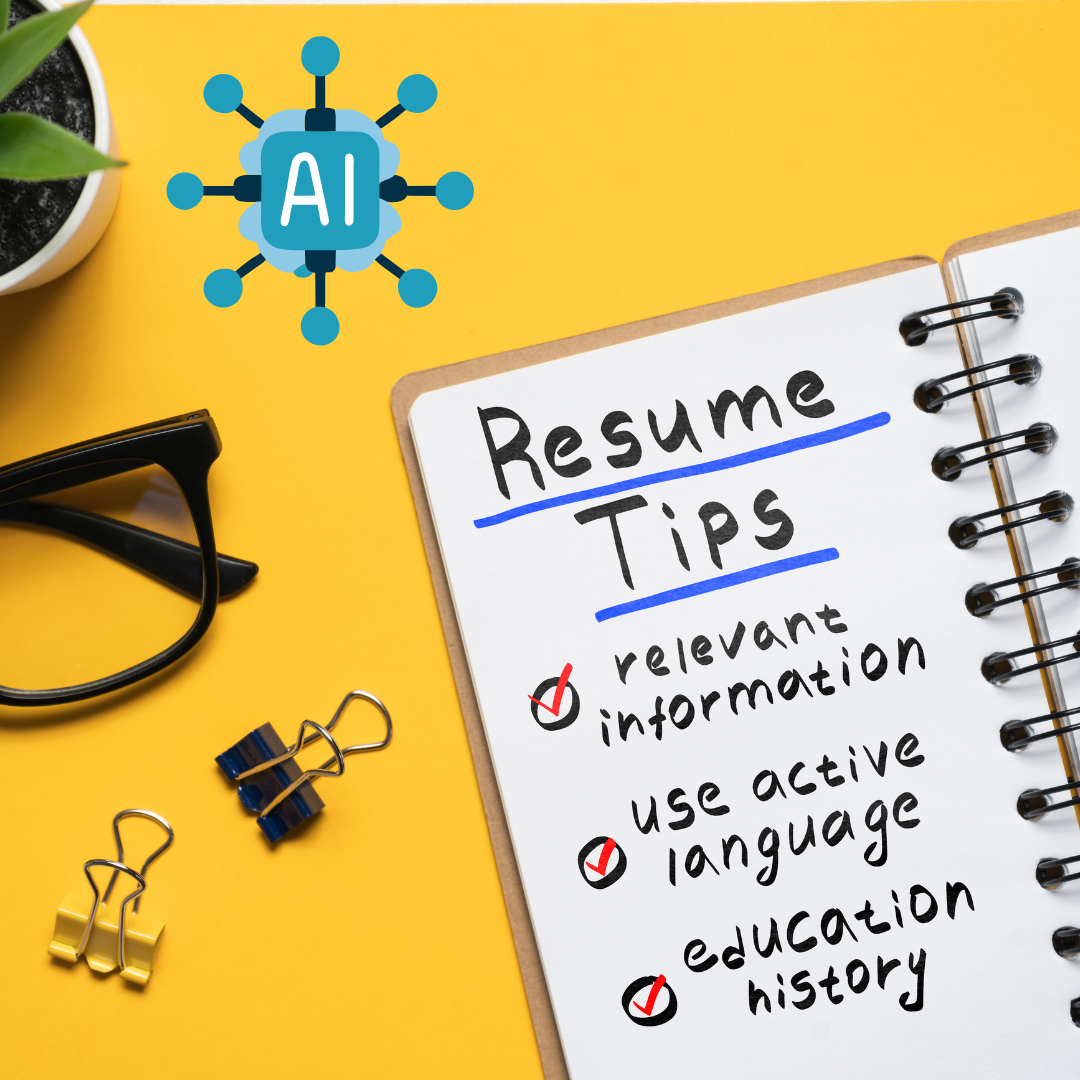 AI
Resume
Tips
relevant
information
use active
language
education
history